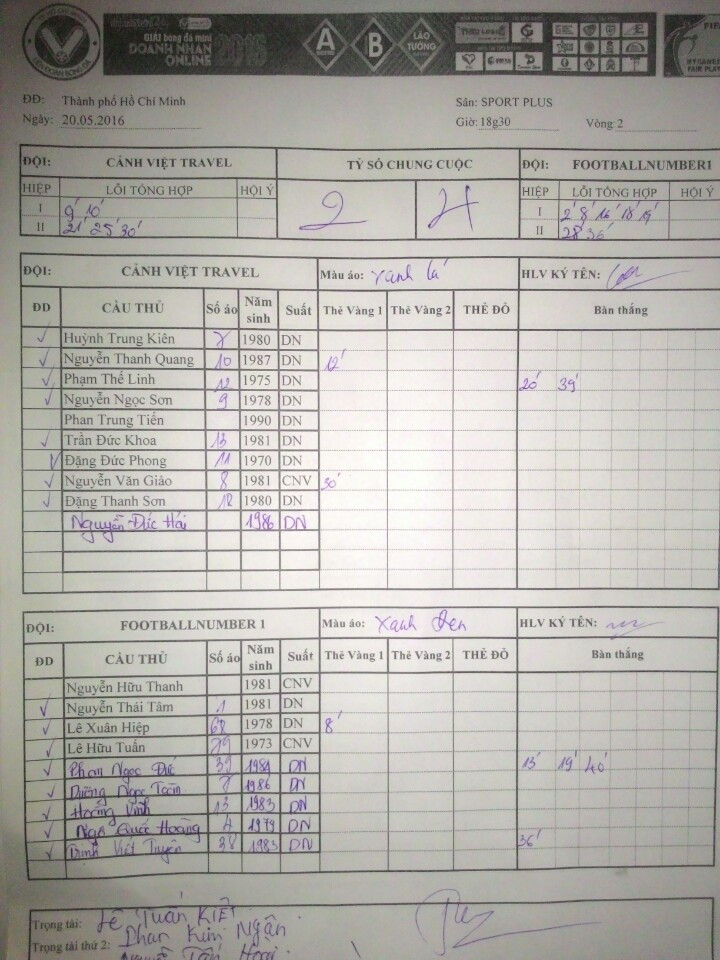 LIÊN ĐOÀN BÓNG ĐÁ
GIẢI bóng đá mini
DOANH NHÂN
ONLINE 2016
A B LÃO TƯỚNG
FIFA
MY GAME IS
FAIR PLAY
ĐĐ: Thành phố Hồ Chí Minh Sân: SPORT PLUS
Ngày: 20.05.2016 Giờ: 18g30 Vòng: 2
ĐỘI: CẢNH VIỆT TRAVEL TỶ SỐ CHUNG CUỘC ĐỘI: FOOTBALLNUMBER1
HIỆP LỖI TỔNG HỢP HỘI Ý 2 4 HIỆP LỖI TỔNG HỢP HỘI Ý
I 9' 10' I 2' 8' 16' 18' 19'
II 21' 25' 30' II 28' 36'
ĐỘI: CẢNH VIỆT TRAVEL Màu áo: xanh lá HLV KÝ TÊN:
ĐD CẦU THỦ Số áo Năm sinh Suất Thẻ Vàng 1 Thẻ Vàng 2 THẺ ĐỎ Bàn thắng
✓ Huỳnh Trung Kiên 1980 DN
✓ Nguyễn Thanh Quang 10 1987 DN 12'
✓ Phạm Thế Linh 12 1975 DN 20' 39'
✓ Nguyễn Ngọc Sơn 9 1978 DN
Phan Trung Tiến 1990 DN
✓ Trần Đức Khoa 13 1981 DN
✓ Đặng Đức Phong 11 1970 DN
✓ Nguyễn Văn Giảo 8 1981 CNV 30'
✓ Đặng Thanh Sơn 18 1980 DN
Nguyễn Đức Hải 1986 DN
ĐỘI: FOOTBALLNUMBER 1 Màu áo: Xanh Đen HLV KÝ TÊN:
ĐD CẦU THỦ Số áo Năm sinh Suất Thẻ Vàng 1 Thẻ Vàng 2 THẺ ĐỎ Bàn thắng
Nguyễn Hữu Thanh 1981 CNV
✓ Nguyễn Thái Tâm 1 1981 DN
✓ Lê Xuân Hiệp 68 1978 DN 8'
✓ Lê Hữu Tuấn 79 1973 CNV
✓ Phạm Ngọc Đức 39 DN 13' 19' 40'
✓ Dương Ngọc Toàn 1986 DN
✓ Hoàng Vĩnh 13 1983 DN
✓ Ngô Quốc Hoàng 4 1979 DN
✓ Trịnh Viết Truyền 38 1983 DN 36'
Trọng tài: Lê Tuấn KIỆT
Trọng tài thứ 2: Phan Kim Ngận
Nguyễn Tấn Hoài